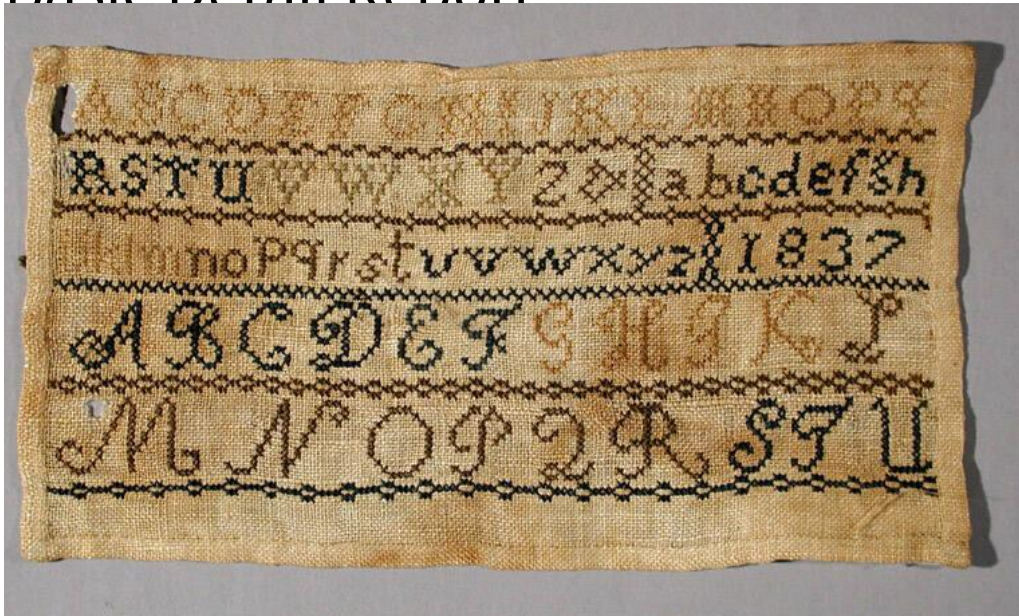 A B C D E F G H I J K L M N O P Q
R S T U V W X Y Z & a b c d e f g h
k l m n o p q r s t u v w x y z 1837
A B C D E F G H I K L
M N O P Q R S T U